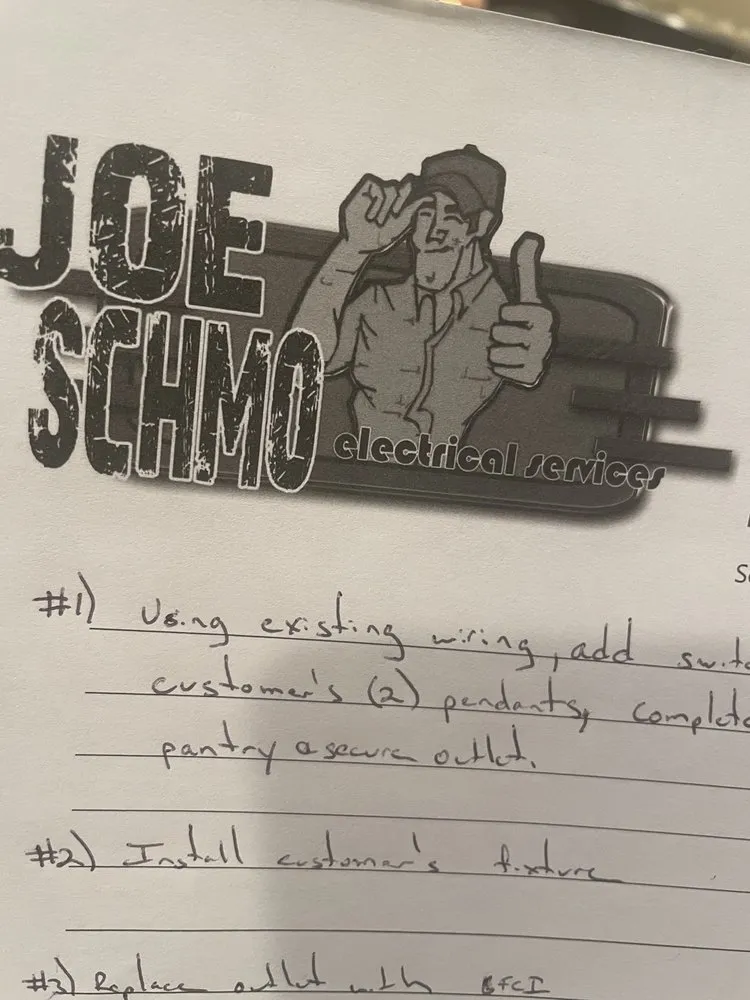 JOE
SCHMO
electrical services
#1) Using existing wiring, add
customer's (2) pendants,
pantry & secure outlet.
#2) Install customer's fixture
#3) Replace outlet with GFCI